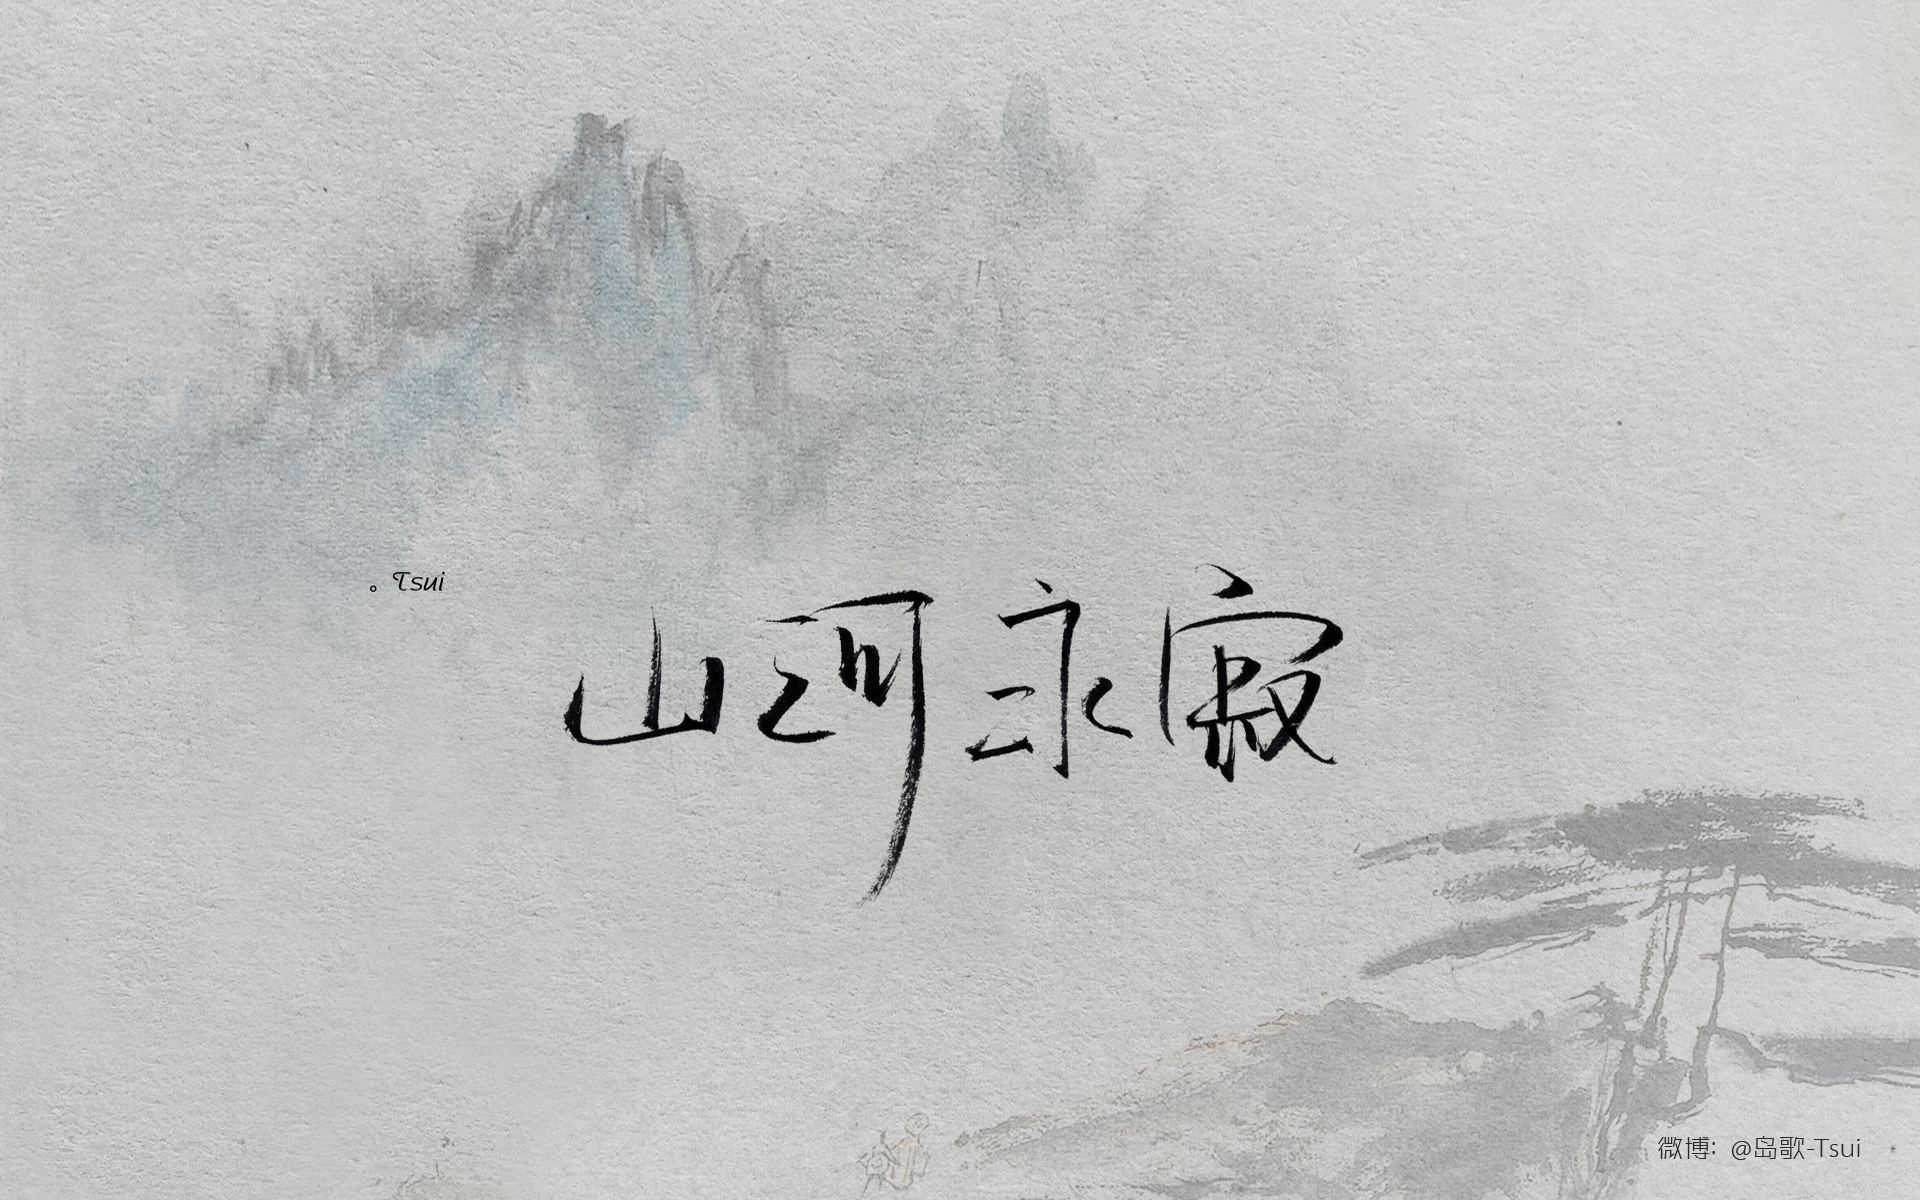 。Tsui
山河永寂
微博: @岛歌-Tsui